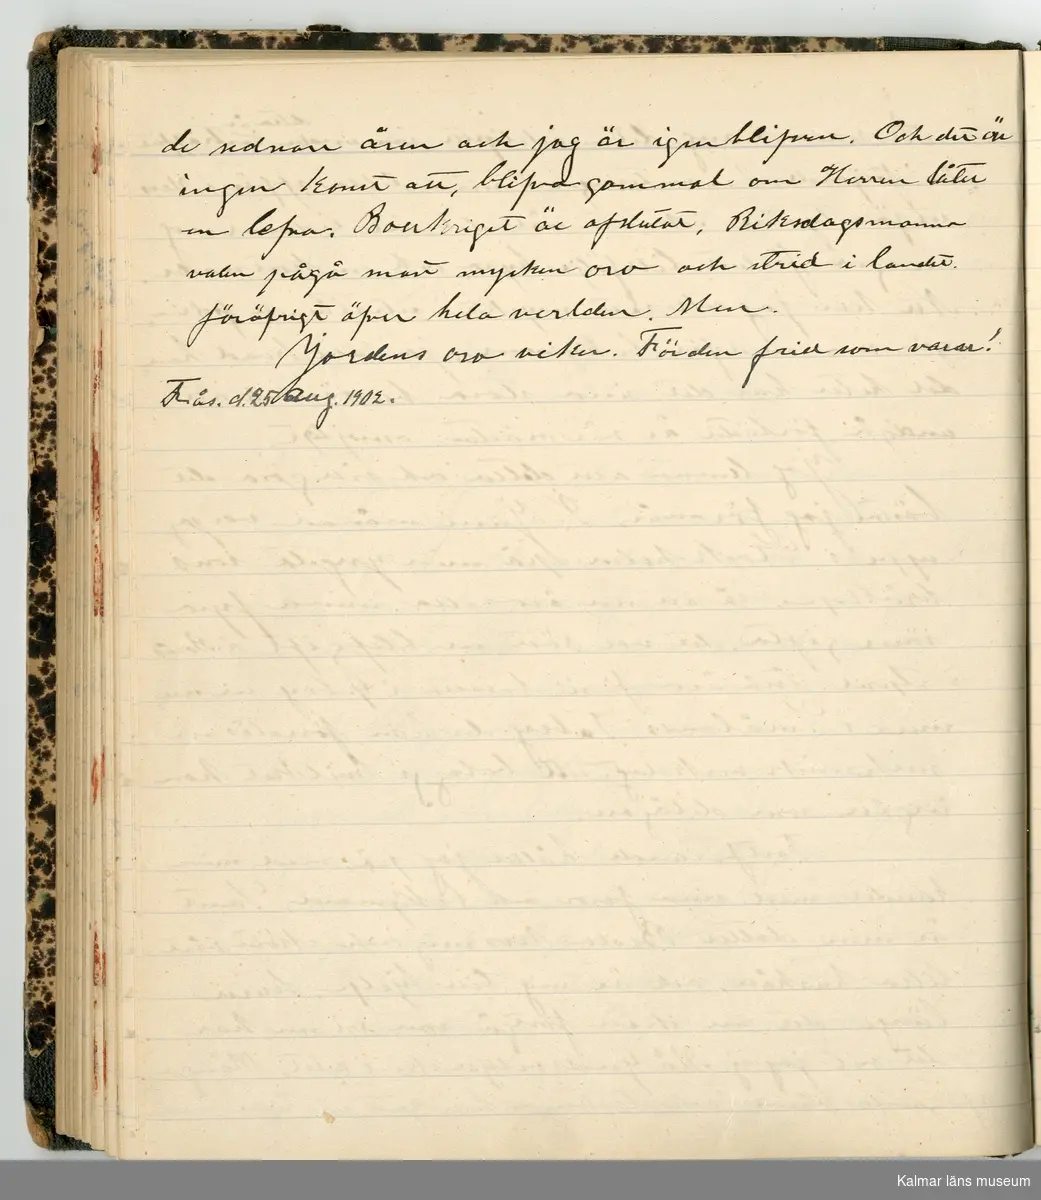 de sednare åren och jag är igenblifven. Och det är
ingen konst att, blifva gammal om Herren låter
en lefva. Boerkriget är afslutat, Riksdagsmanna
valen pågå mast mycken oro och strid i landet.
föröfrigt öfver hela verlden. Men.
Jordens oro viker. För den frid som varar!
Fås. d. 25 Aug. 1902.
Kalmar läns museum